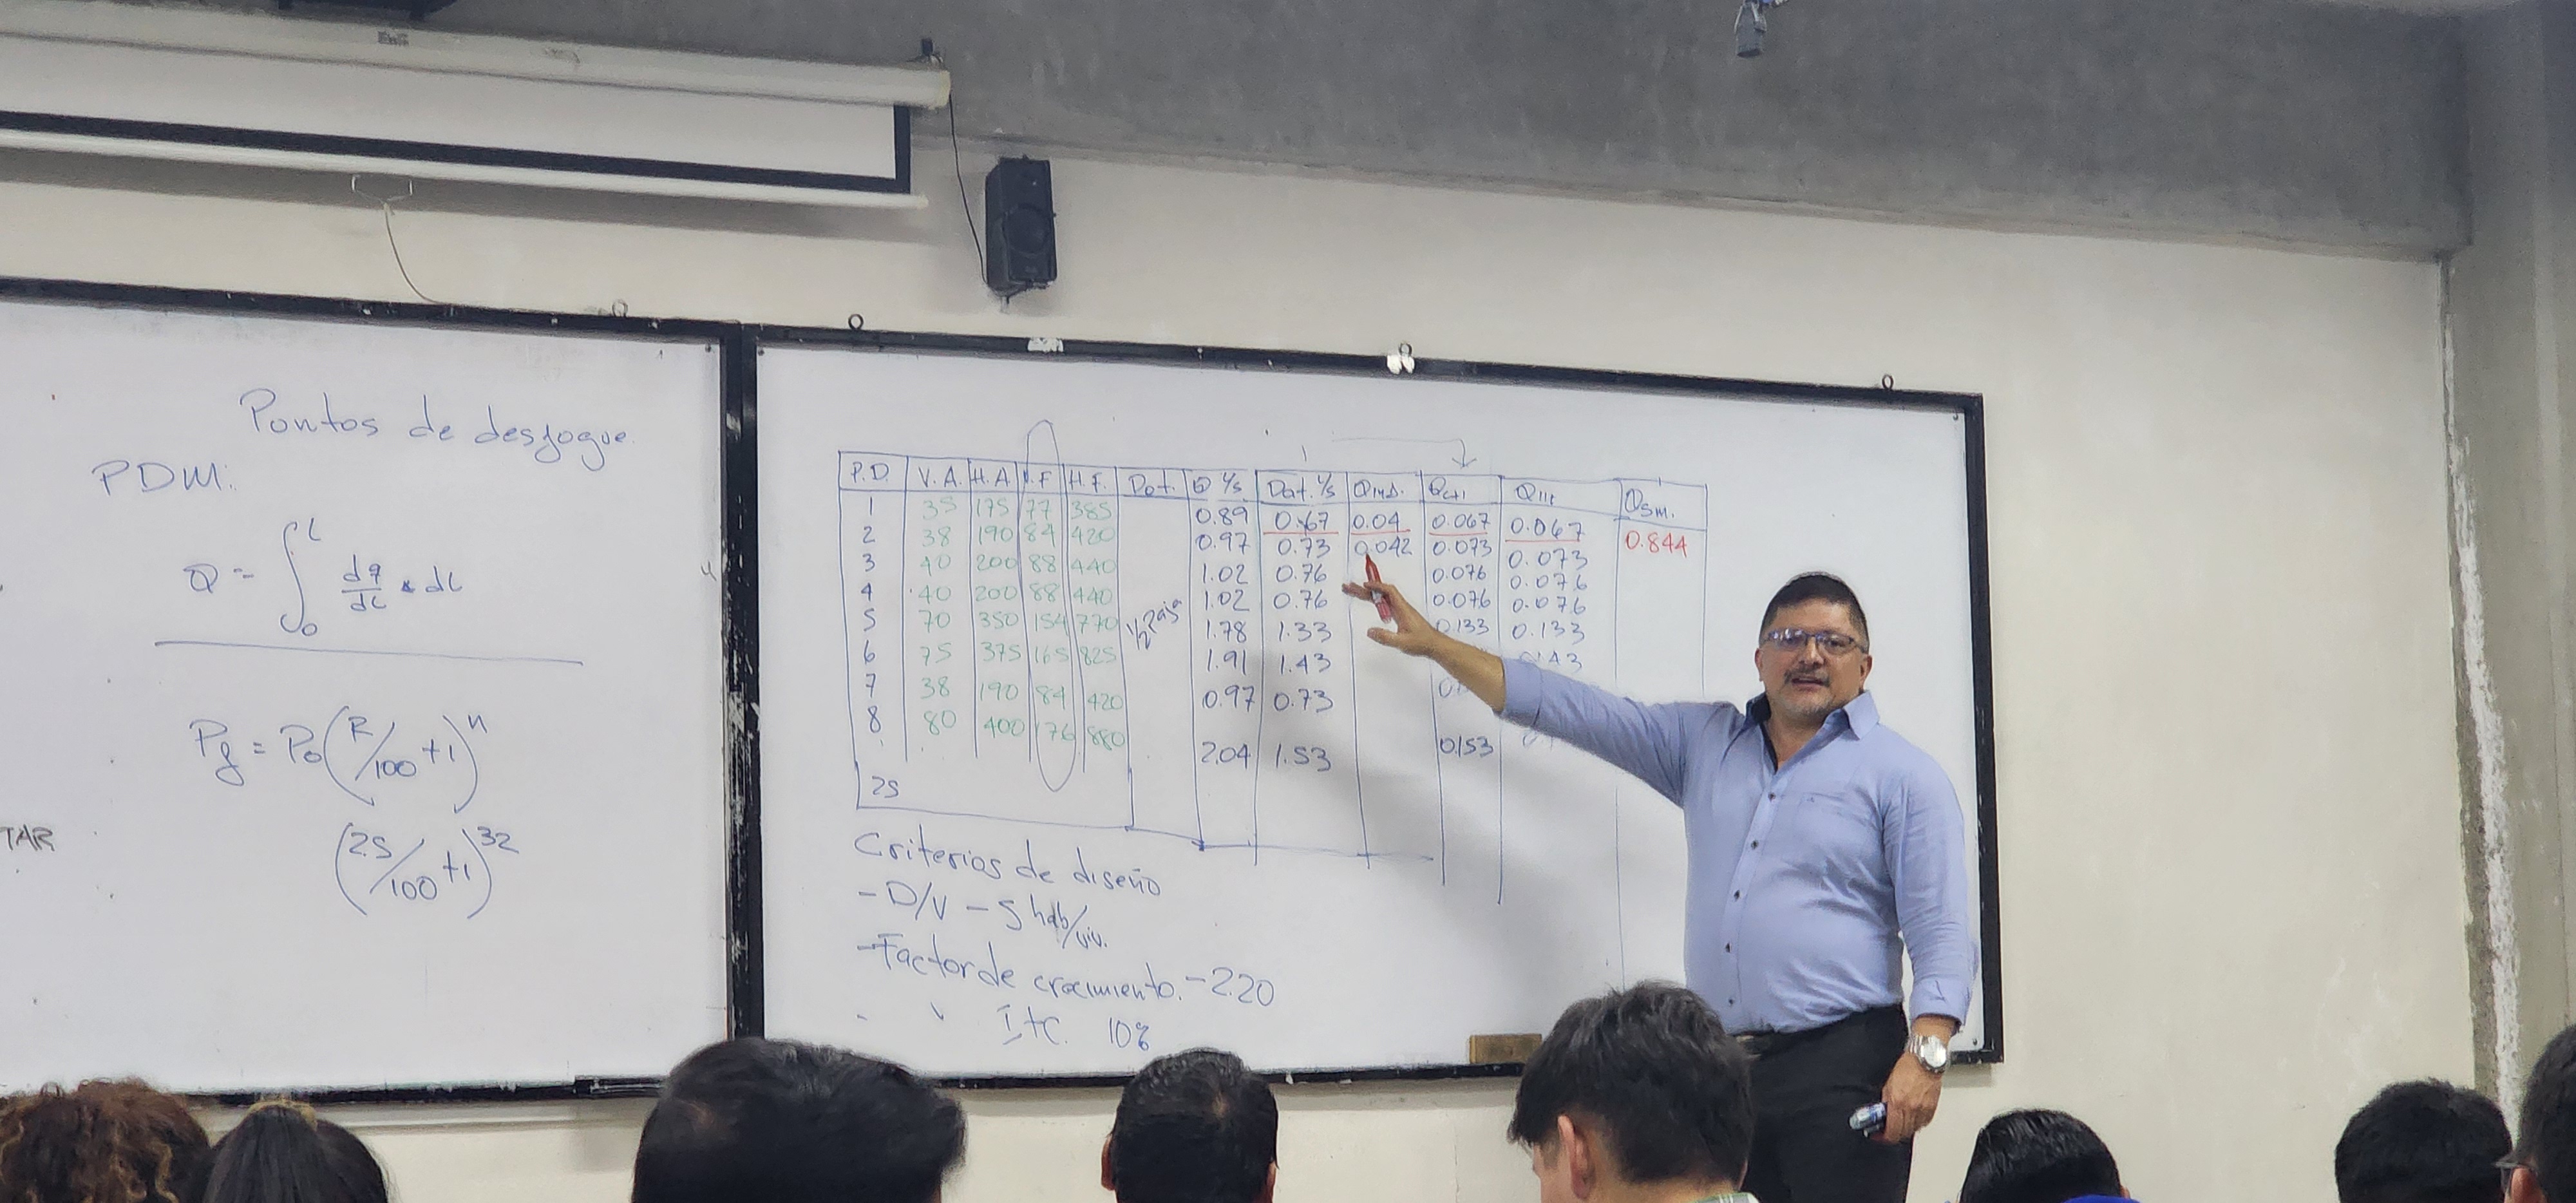 Puntos de desfogue.
PDM:
Q = ∫ 0 L dq/dL * dL
Pf = Po (R/100 + 1)^n
(2.5/100 + 1)^32
TAR
P.D. V.A. H.A V.F H.F. Dot. Q l/s Dot. l/s QIND. QCI Qilic QSM.
1 35 175 77 385 0.89 0.67 0.04 0.067 0.067
2 38 190 84 420 0.97 0.73 0.042 0.073 0.073 0.844
3 40 200 88 440 1.02 0.76 0.076 0.076
4 40 200 88 440 1.02 0.76 0.076 0.076
5 70 350 154 770 1.78 1.33 0.133 0.133
6 75 375 165 825 1.91 1.43
7 38 190 84 420 0.97 0.73
8 80 400 176 880 2.04 1.53 0.153
25
Criterios de diseño
- D/V - 5 hab/viv.
- Factor de crecimiento. - 2.20
I,tc. 10%